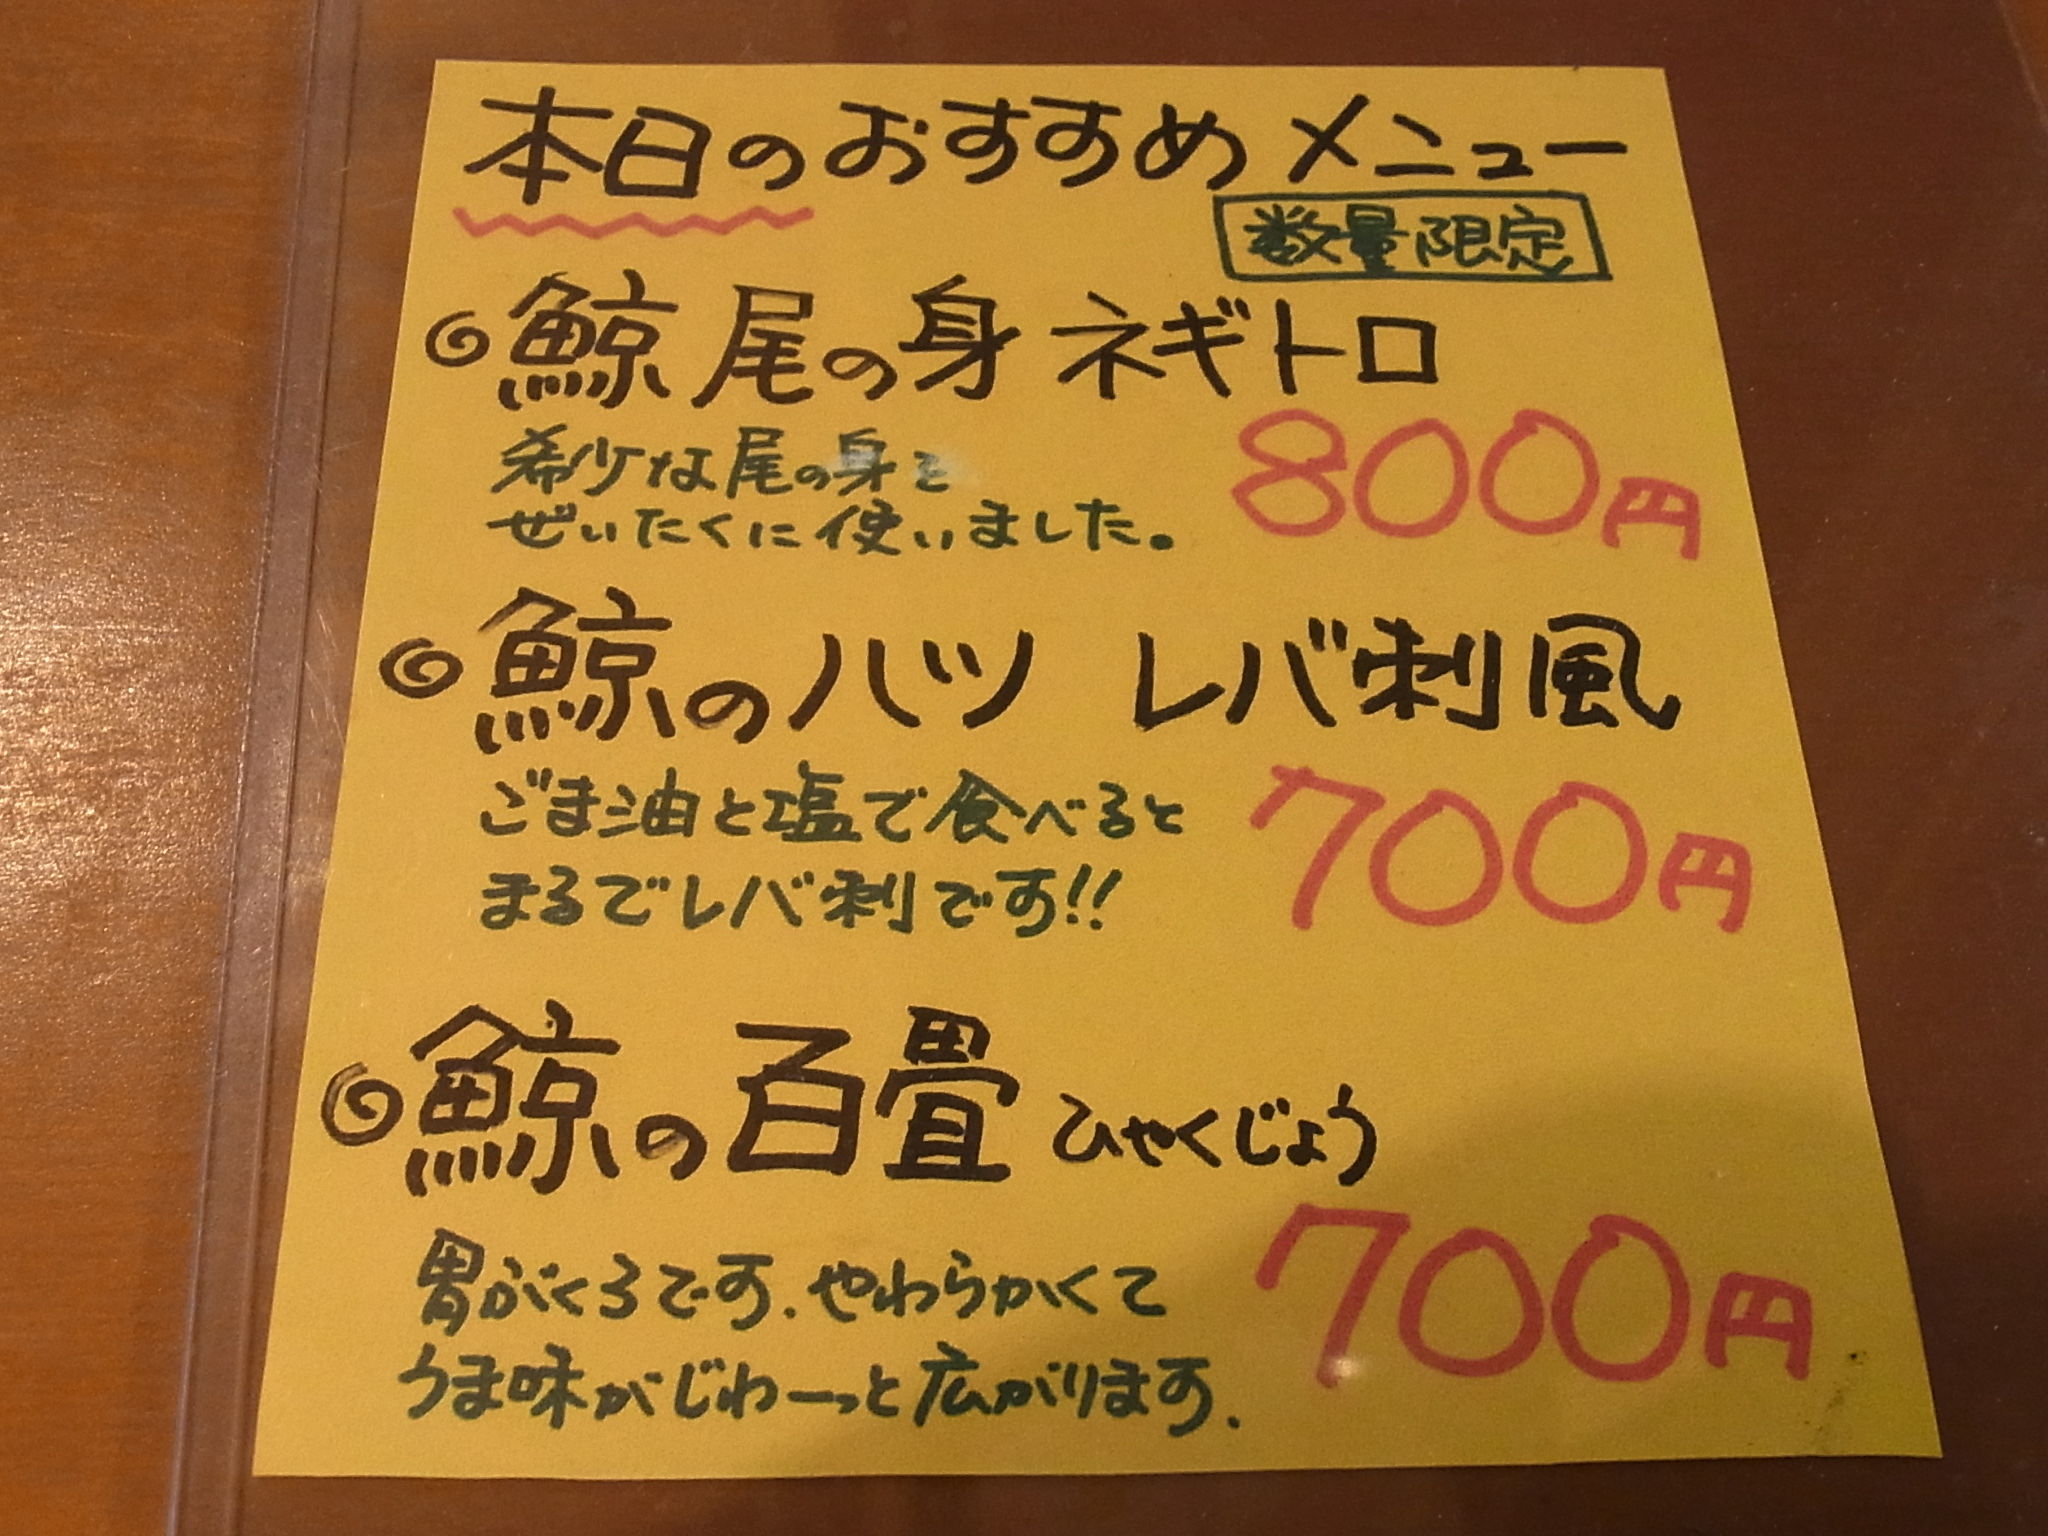 本日のおすすめメニュー
数量限定
鯨尾の身ネギトロ
希少な尾の身を
ぜいたくに使いました。
800円
鯨のハツ レバ刺風
ごま油と塩で食べると
まるでレバ刺です!!
700円
鯨の百畳 ひゃくじょう
胃ぶくろです。やわらかくて
うま味がじわーっと広がります。
700円